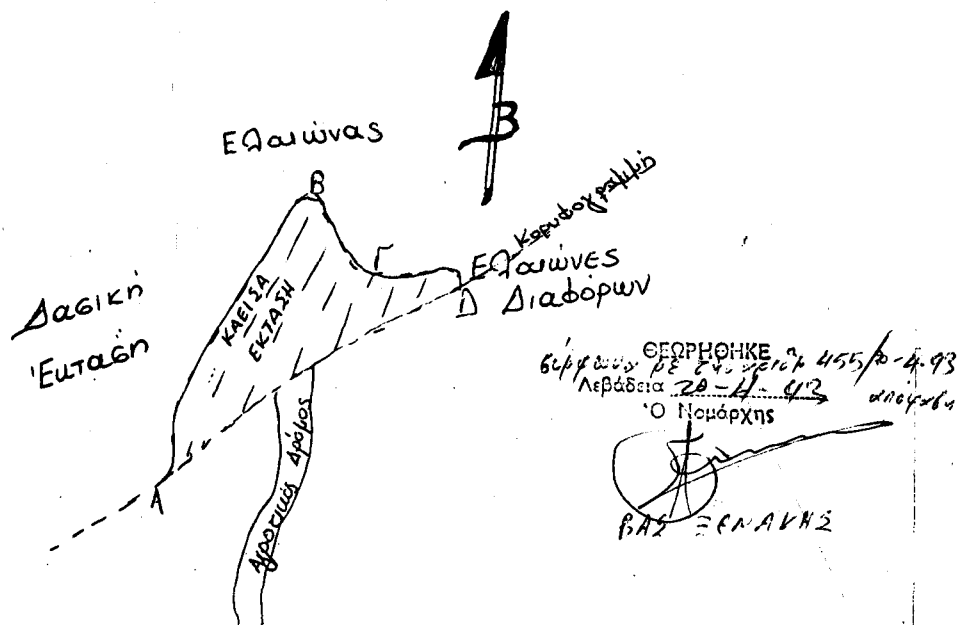 Β
Ελαιώνας
Β
Κορυφογραμμή
Γ
Ελαιώνες
Διαφόρων
D
Δασική
Έκταση
ΚΑΕΙΣΑ
ΕΚΤΑΣΗ
Α
Αγροτικός Δρόμος
ΘΕΩΡΗΘΗΚΕ
σύμφωνα με την 455/20-4-93
Λεβάδεια 20-4-93 απόφαση
Ὁ Νομάρχης
ΒΑΣ ΞΕΝΑΚΗΣ